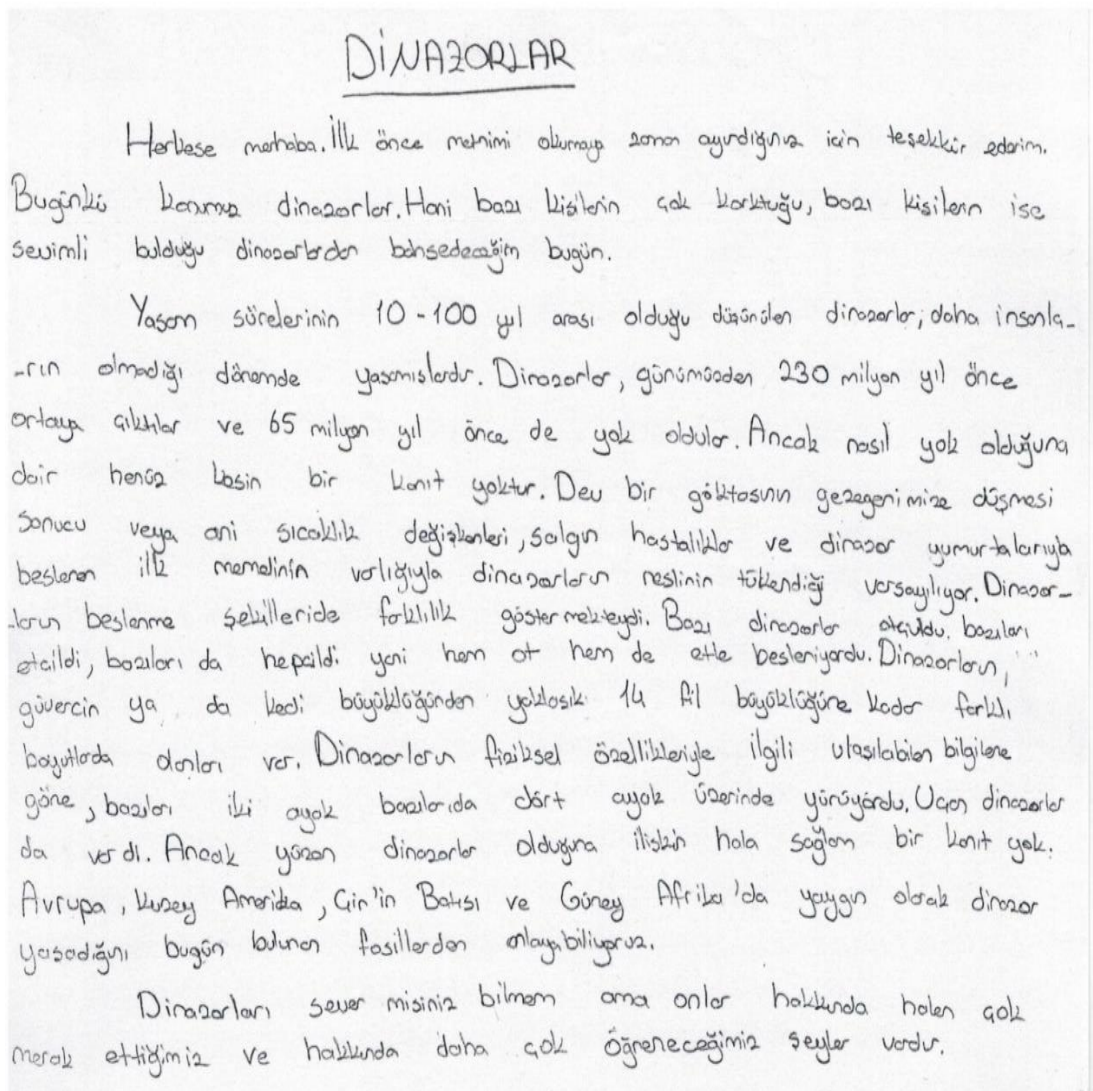 DİNAZORLAR
Herkese merhaba. İlk önce metnimi okumaya zaman ayırdığınız için teşekkür ederim.
Bugünkü konumuz dinazorlar. Hani bazı kişilerin çok korktuğu, bazı kişilerin ise
sevimli bulduğu dinozorlardan bahsedeceğim bugün.
Yaşam sürelerinin 10-100 yıl arası olduğu düşünülen dinazorlar; daha insanla-
-rın olmadığı dönemde yaşamışlardır. Dinozorlar, günümüzden 230 milyon yıl önce
ortaya çıktılar ve 65 milyon yıl önce de yok oldular. Ancak nasıl yok olduğuna
dair henüz kesin bir kanıt yoktur. Dev bir göktaşının gezegenimize düşmesi
sonucu veya ani sıcaklık değişkenleri, salgın hastalıklar ve dinazor yumurtalarıyla
beslenen ilk memelinin varlığıyla dinazorların neslinin tükendiği varsayılıyor. Dinazor-
-ların beslenme şekilleride farklılık göstermekteydi. Bazı dinozorlar otçuldu, bazıları
etçildi, bazıları da hepçildi yani hem ot hem de etle besleniyordu. Dinazorların,
güvercin ya da kedi büyüklüğünden yaklaşık 14 fil büyüklüğüne kadar farklı
boyutlarda olanları var. Dinazorların fiziksel özellikleriyle ilgili ulaşılabilen bilgilere
göre, bazıları iki ayak bazılarıda dört ayak üzerinde yürüyordu. Uçan dinazorlar
da vardı. Ancak yüzen dinazorlar olduğuna ilişkin hala sağlam bir kanıt yok.
Avrupa, Kuzey Amerika, Çin'in Batısı ve Güney Afrika'da yaygın olarak dinazor
yaşadığını bugün bulunan fosillerden anlayabiliyoruz.
Dinazorları sever misiniz bilmem ama onlar hakkında halen çok
merak ettiğimiz ve hakkında daha çok öğreneceğimiz şeyler vardır.